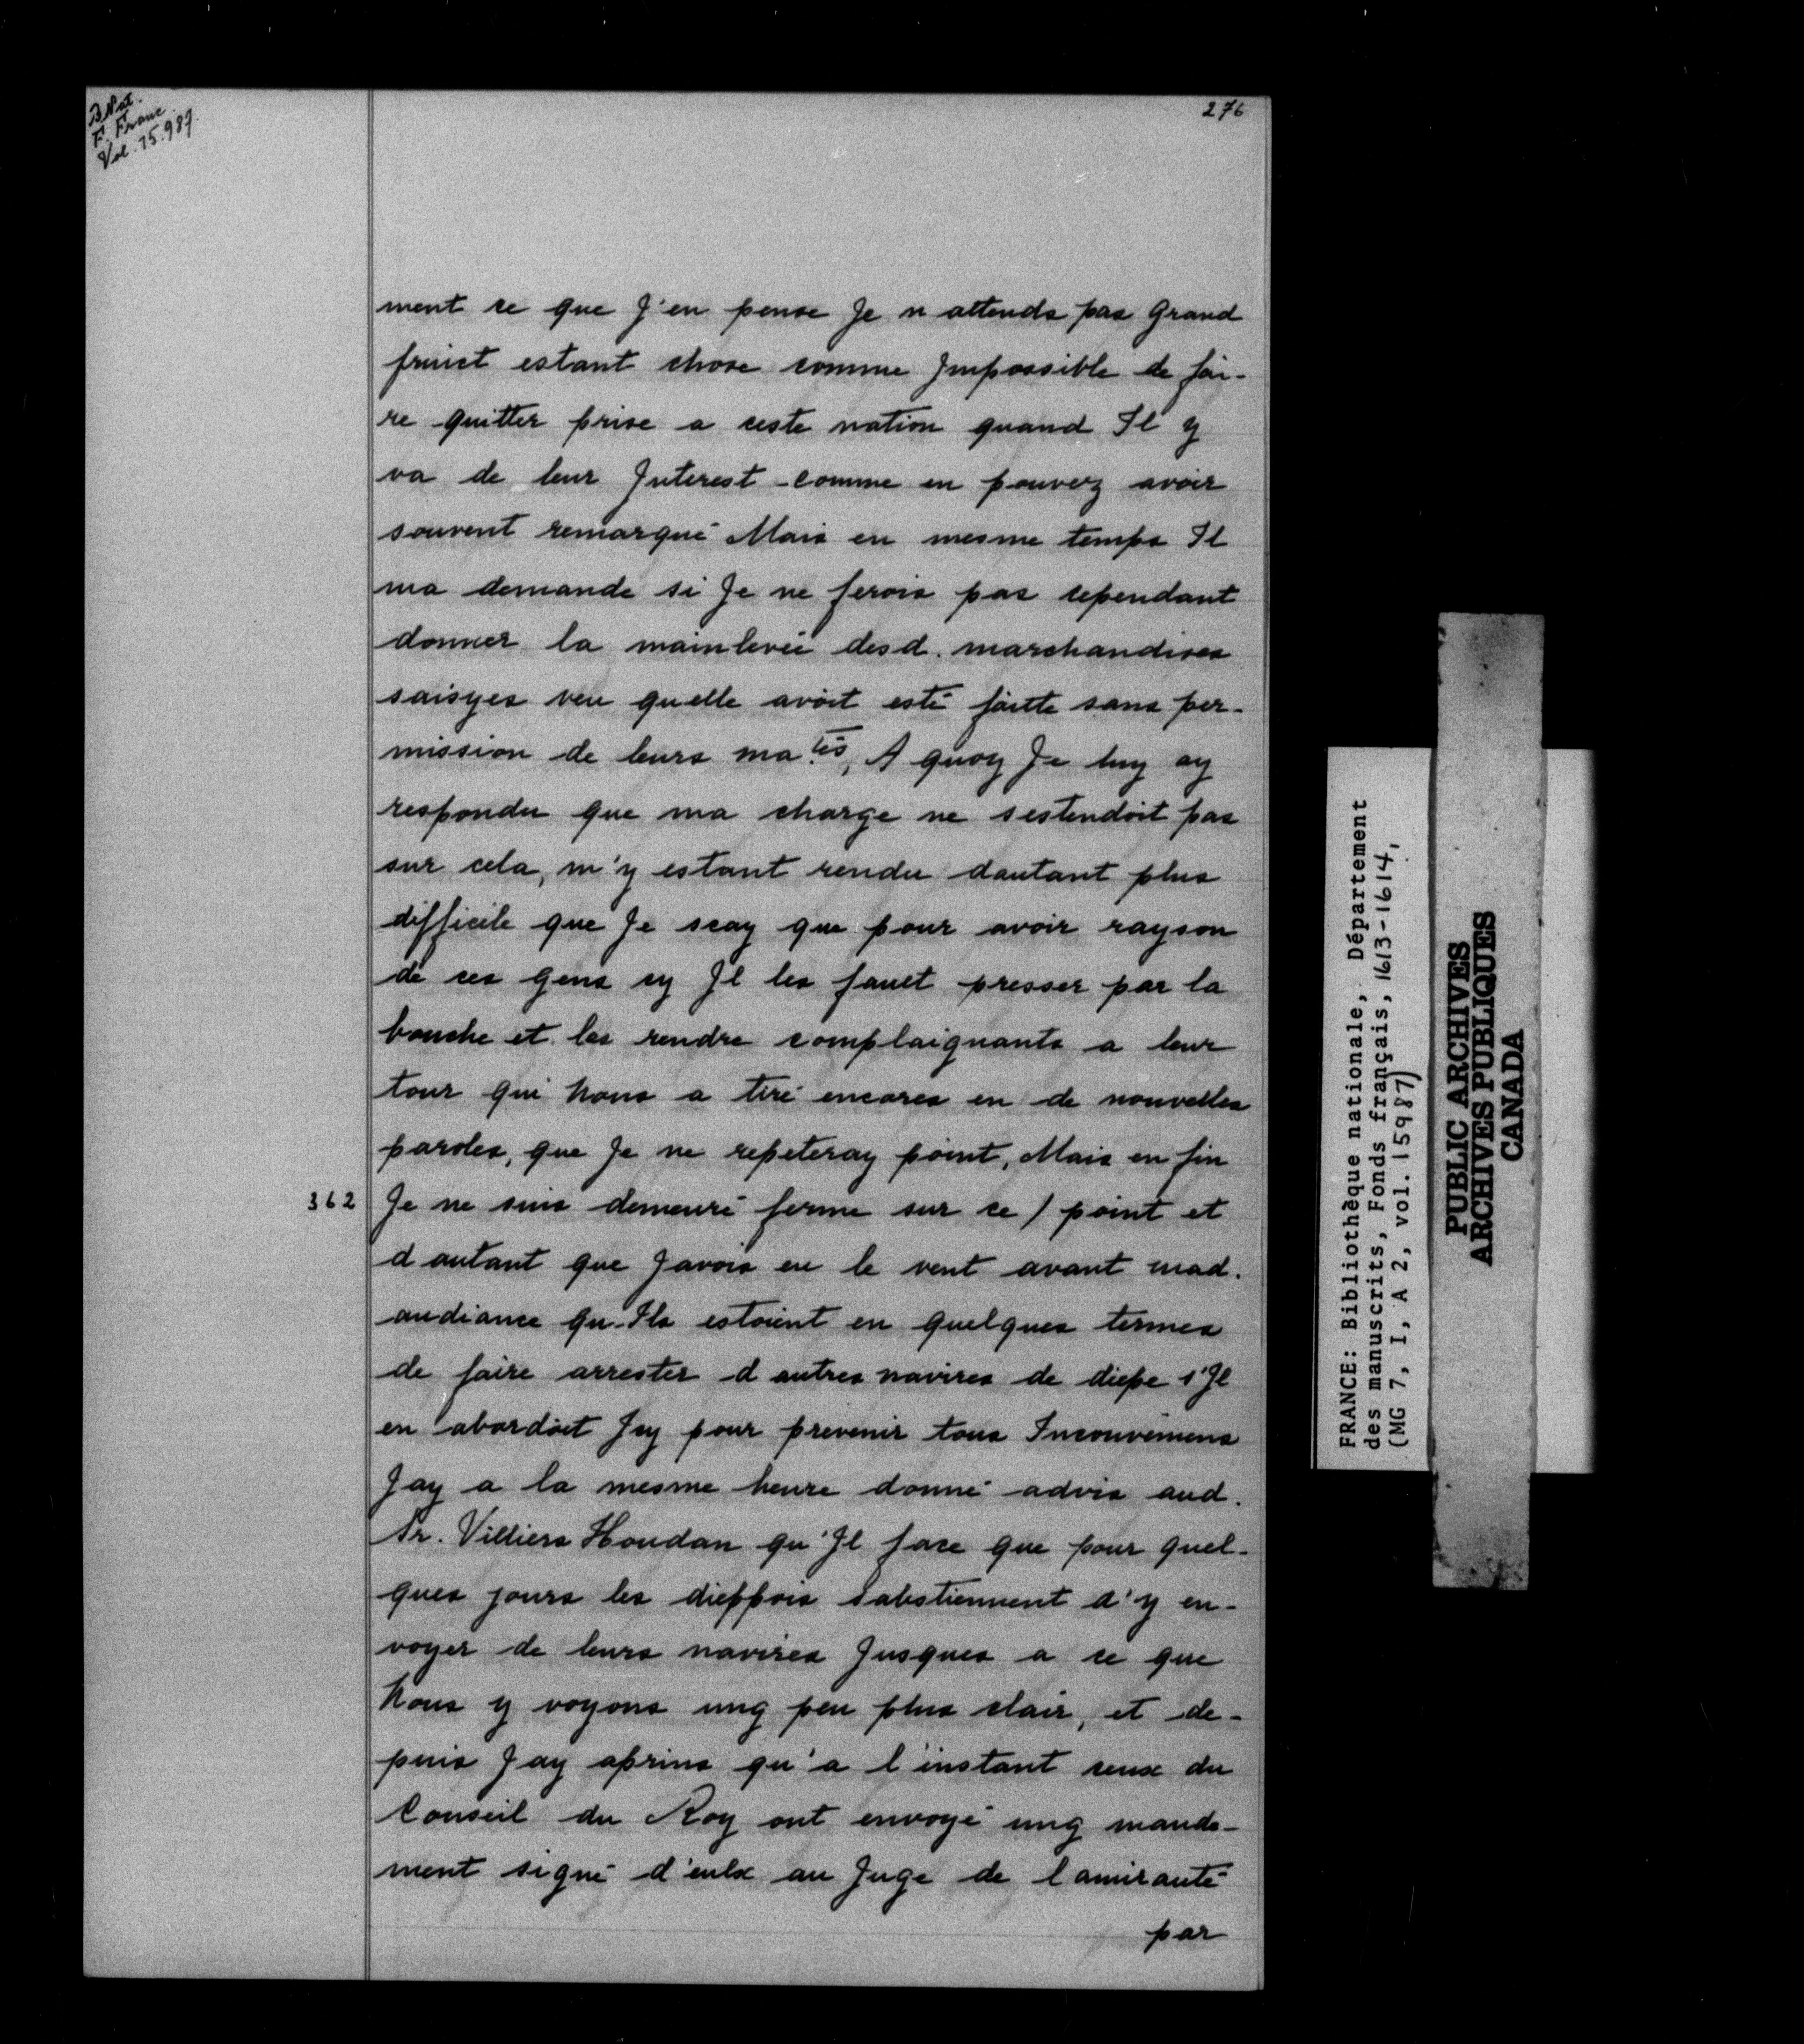 B. Nat.
F. Franc.
Vol. 15.987.
276
ment ce que J'en pense Je n attends pas Grand
fruict estant chose comme Jmpossible de fai-
re quitter prise a ceste nation quand Il y
va de leur Jnterest comme en pouvez avoir
souvent remarqué Mais en mesme temps Il
ma demande si Je ne ferois pas cependant
donner la mainlevée desd. marchandises
saisyes veu quelle avoit esté faitte sans per-
mission de leurs ma.tés, A quoy Je luy ay
respondu que ma charge ne sestendoit pas
sur cela, m'y estant rendu dautant plus
difficile que Je scay que pour avoir rayson
de ces gens cy Jl les fault presser par la
bouche et les rendre complaignants a leur
tour qui nous a tiré encores en de nouvelles
paroles, que Je ne repeteray point, Mais en fin
362 Je ne suis demeuré ferme sur ce / point et
d autant que Javois eu le vent avant mad.
audiance qu-Ils estoient en quelques termes
de faire arrester d autres navires de diepe s'Jl
en abordoit Jcy pour prevenir tous Inconveniens
Jay a la mesme heure donné advis aud.
Sr. Villiers Houdan qu'Jl face que pour quel-
ques jours les dieppois sabstiennent d'y en-
voyer de leurs navires Jusques a ce que
nous y voyons ung peu plus clair, et de-
puis Jay aprins qu'a l'instant ceux du
Conseil du Roy ont envoyé ung mande-
ment signé d'eulx au Juge de lamirauté
par
FRANCE: Bibliothèque nationale, Département
des manuscrits, Fonds français, 1613-1614,
(MG 7, I, A 2, vol. 15987)
PUBLIC ARCHIVES
ARCHIVES PUBLIQUES
CANADA